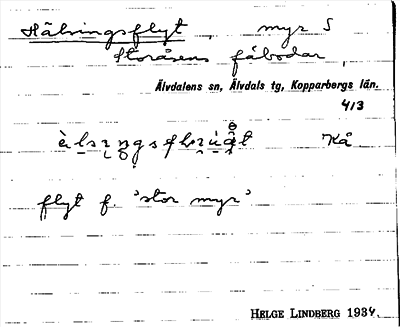 Hälsingsflyt, myr S
Storåsens fäbodar,
Älvdalens sn, Älvdals tg, Kopparbergs län.
413
Kå
flyt f. 'stor myr'
HELGE LINDBERG 1934.